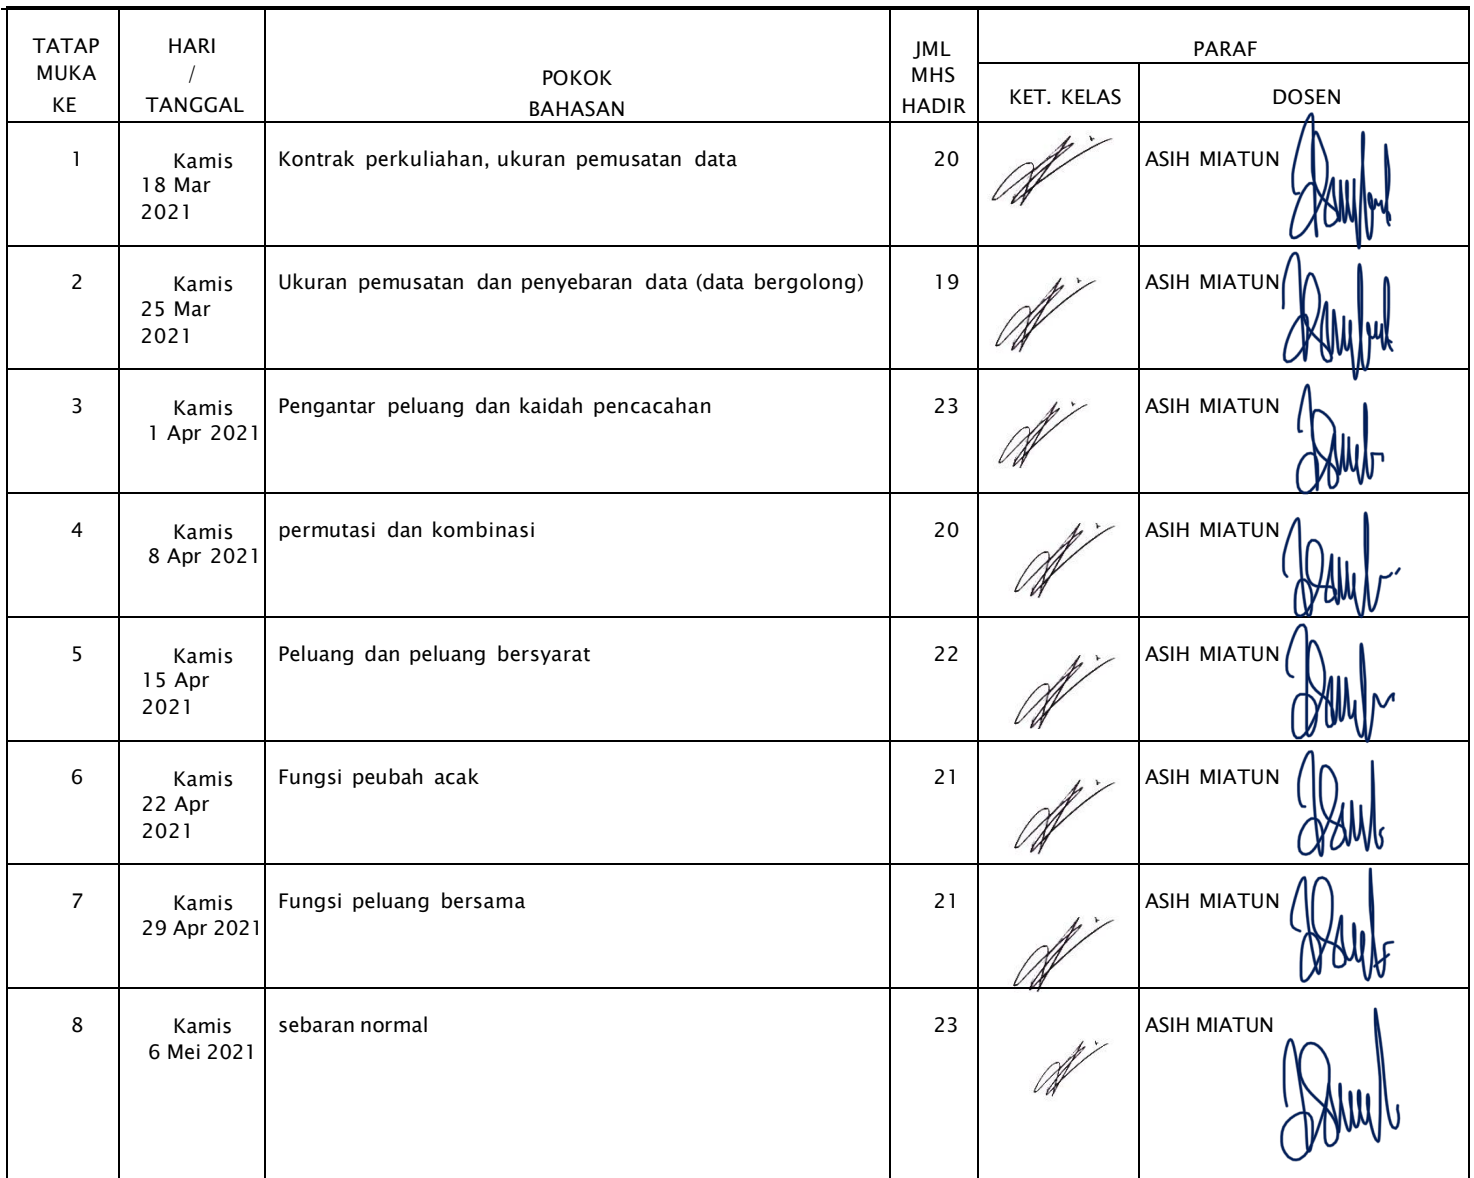 TATAP
MUKA
KE
HARI
/
TANGGAL
POKOK
BAHASAN
JML
MHS
HADIR
PARAF
KET. KELAS
DOSEN
1
Kamis
18 Mar
2021
Kontrak perkuliahan, ukuran pemusatan data
20
ASIH MIATUN
2
Kamis
25 Mar
2021
Ukuran pemusatan dan penyebaran data (data bergolong)
19
ASIH MIATUN
3
Kamis
1 Apr 2021
Pengantar peluang dan kaidah pencacahan
23
ASIH MIATUN
4
Kamis
8 Apr 2021
permutasi dan kombinasi
20
ASIH MIATUN
5
Kamis
15 Apr
2021
Peluang dan peluang bersyarat
22
ASIH MIATUN
6
Kamis
22 Apr
2021
Fungsi peubah acak
21
ASIH MIATUN
7
Kamis
29 Apr 2021
Fungsi peluang bersama
21
ASIH MIATUN
8
Kamis
6 Mei 2021
sebaran normal
23
ASIH MIATUN